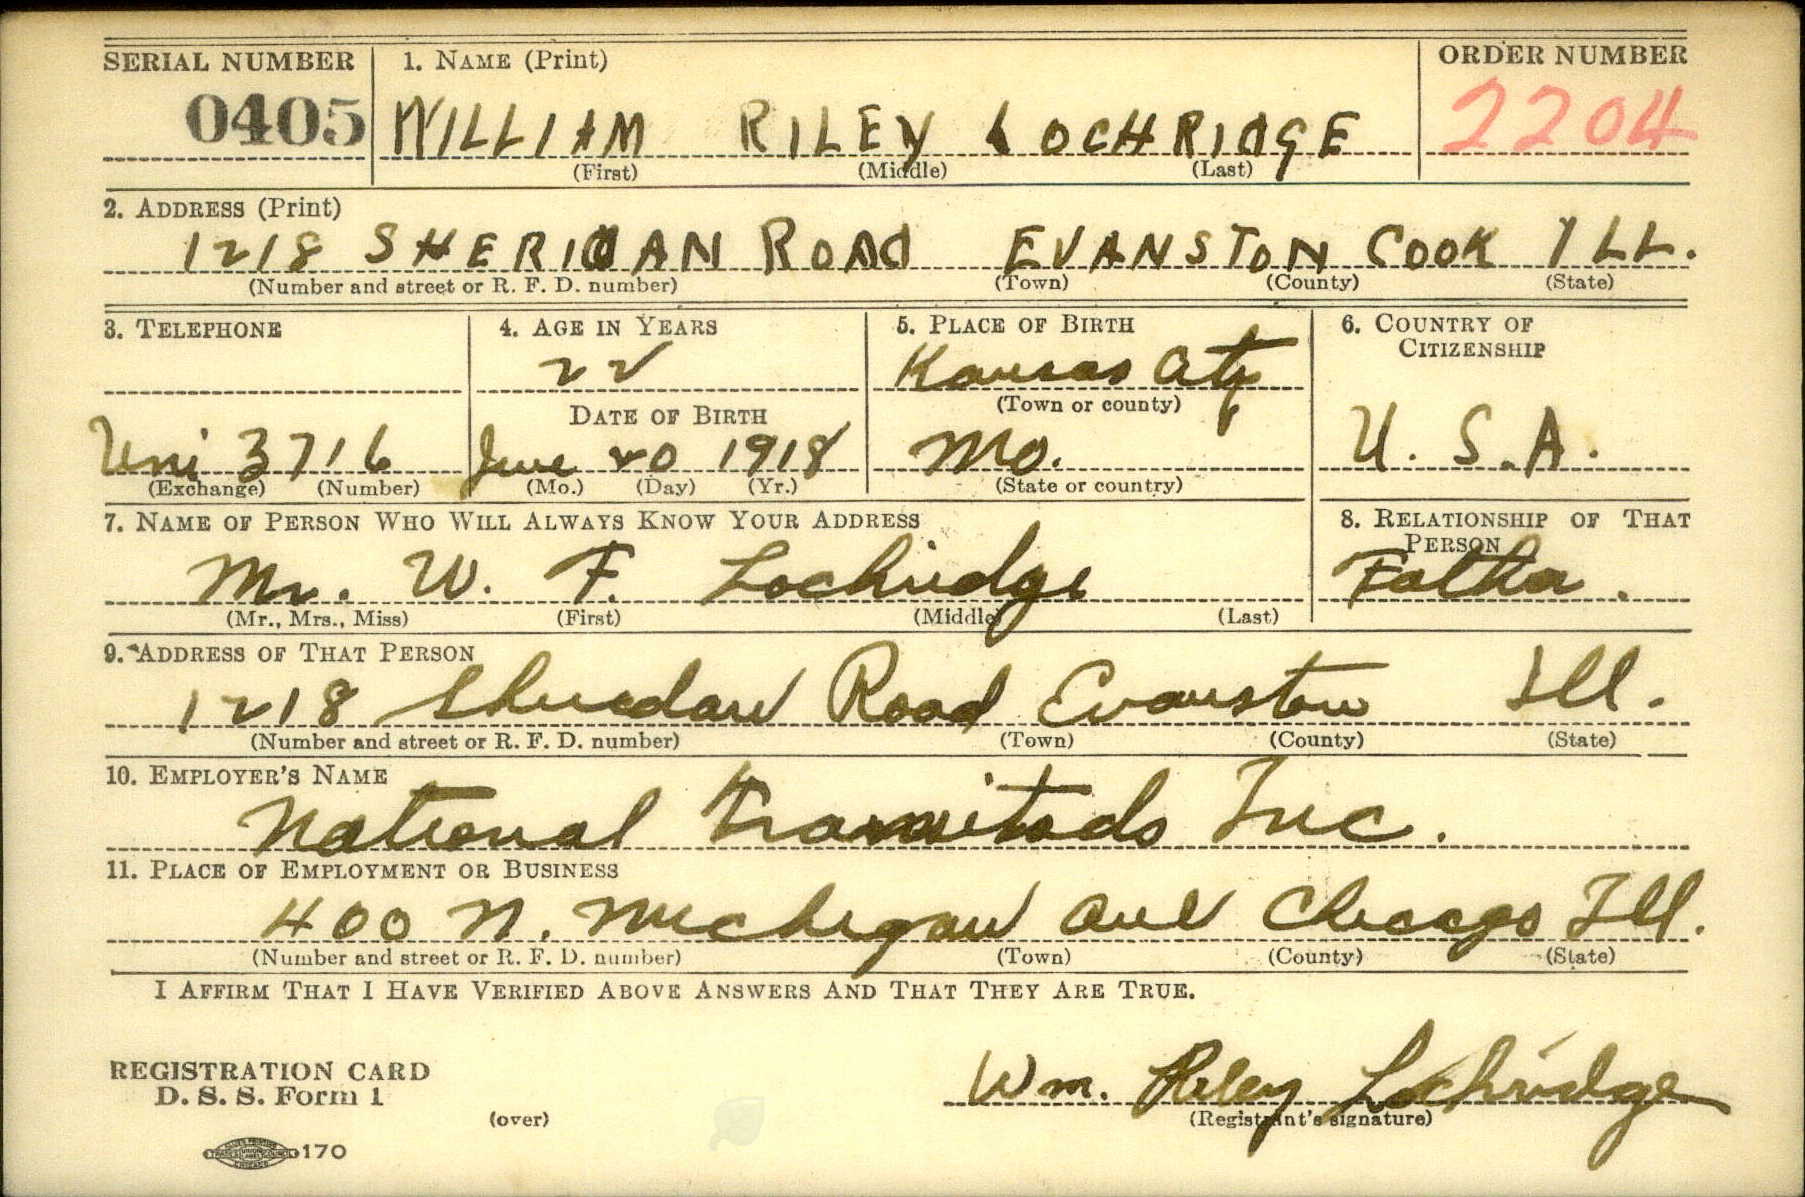 SERIAL NUMBER 1. NAME (Print) ORDER NUMBER
0405 WILLIAM RILEY LOCHRIDGE 2204
(First) (Middle) (Last)
2. ADDRESS (Print)
1218 SHERIDAN ROAD EVANSTON COOK ILL.
(Number and street or R. F. D. number) (Town) (County) (State)
3. TELEPHONE 4. AGE IN YEARS 5. PLACE OF BIRTH 6. COUNTRY OF
CITIZENSHIP
22 Kansas City
(Town or county)
DATE OF BIRTH
Uni 3716 June 20 1918 Mo. U. S. A.
(Exchange) (Number) (Mo.) (Day) (Yr.) (State or country)
7. NAME OF PERSON WHO WILL ALWAYS KNOW YOUR ADDRESS 8. RELATIONSHIP OF THAT
PERSON
Mr. W. F. Lochridge Father.
(Mr., Mrs., Miss) (First) (Middle) (Last)
9. ADDRESS OF THAT PERSON
1218 Sheridan Road Evanston Ill.
(Number and street or R. F. D. number) (Town) (County) (State)
10. EMPLOYER'S NAME
National Transitads Inc.
11. PLACE OF EMPLOYMENT OR BUSINESS
400 N. Michigan Ave Chicago Ill.
(Number and street or R. F. D. number) (Town) (County) (State)
I AFFIRM THAT I HAVE VERIFIED ABOVE ANSWERS AND THAT THEY ARE TRUE.
REGISTRATION CARD
D. S. S. Form 1
Wm. Riley Lochridge
(over) (Registrant's signature)
170